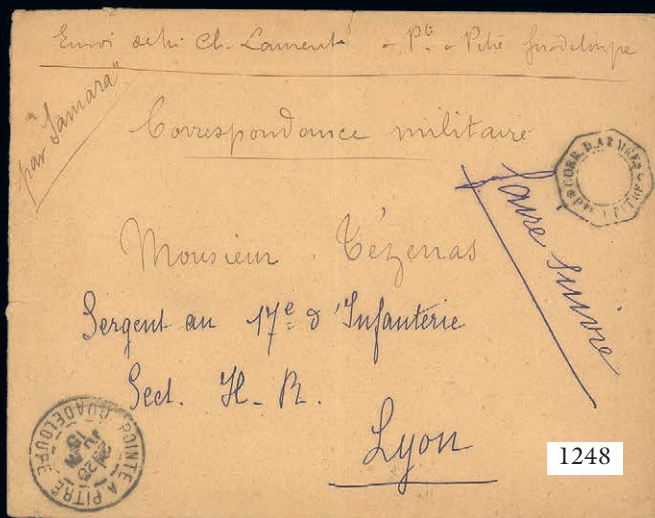 Envoi de Mr Ch. Lamenté à Pte à Pitre Guadeloupe
par "Samara"
Correspondance militaire
CORR. D. ARMÉES
PTE A PITRE
faire suivre
Monsieur Tézenas
Sergent au 17e d'Infanterie
Sect. H. R.
Lyon
POINTE A PITRE
GUADELOUPE
1248